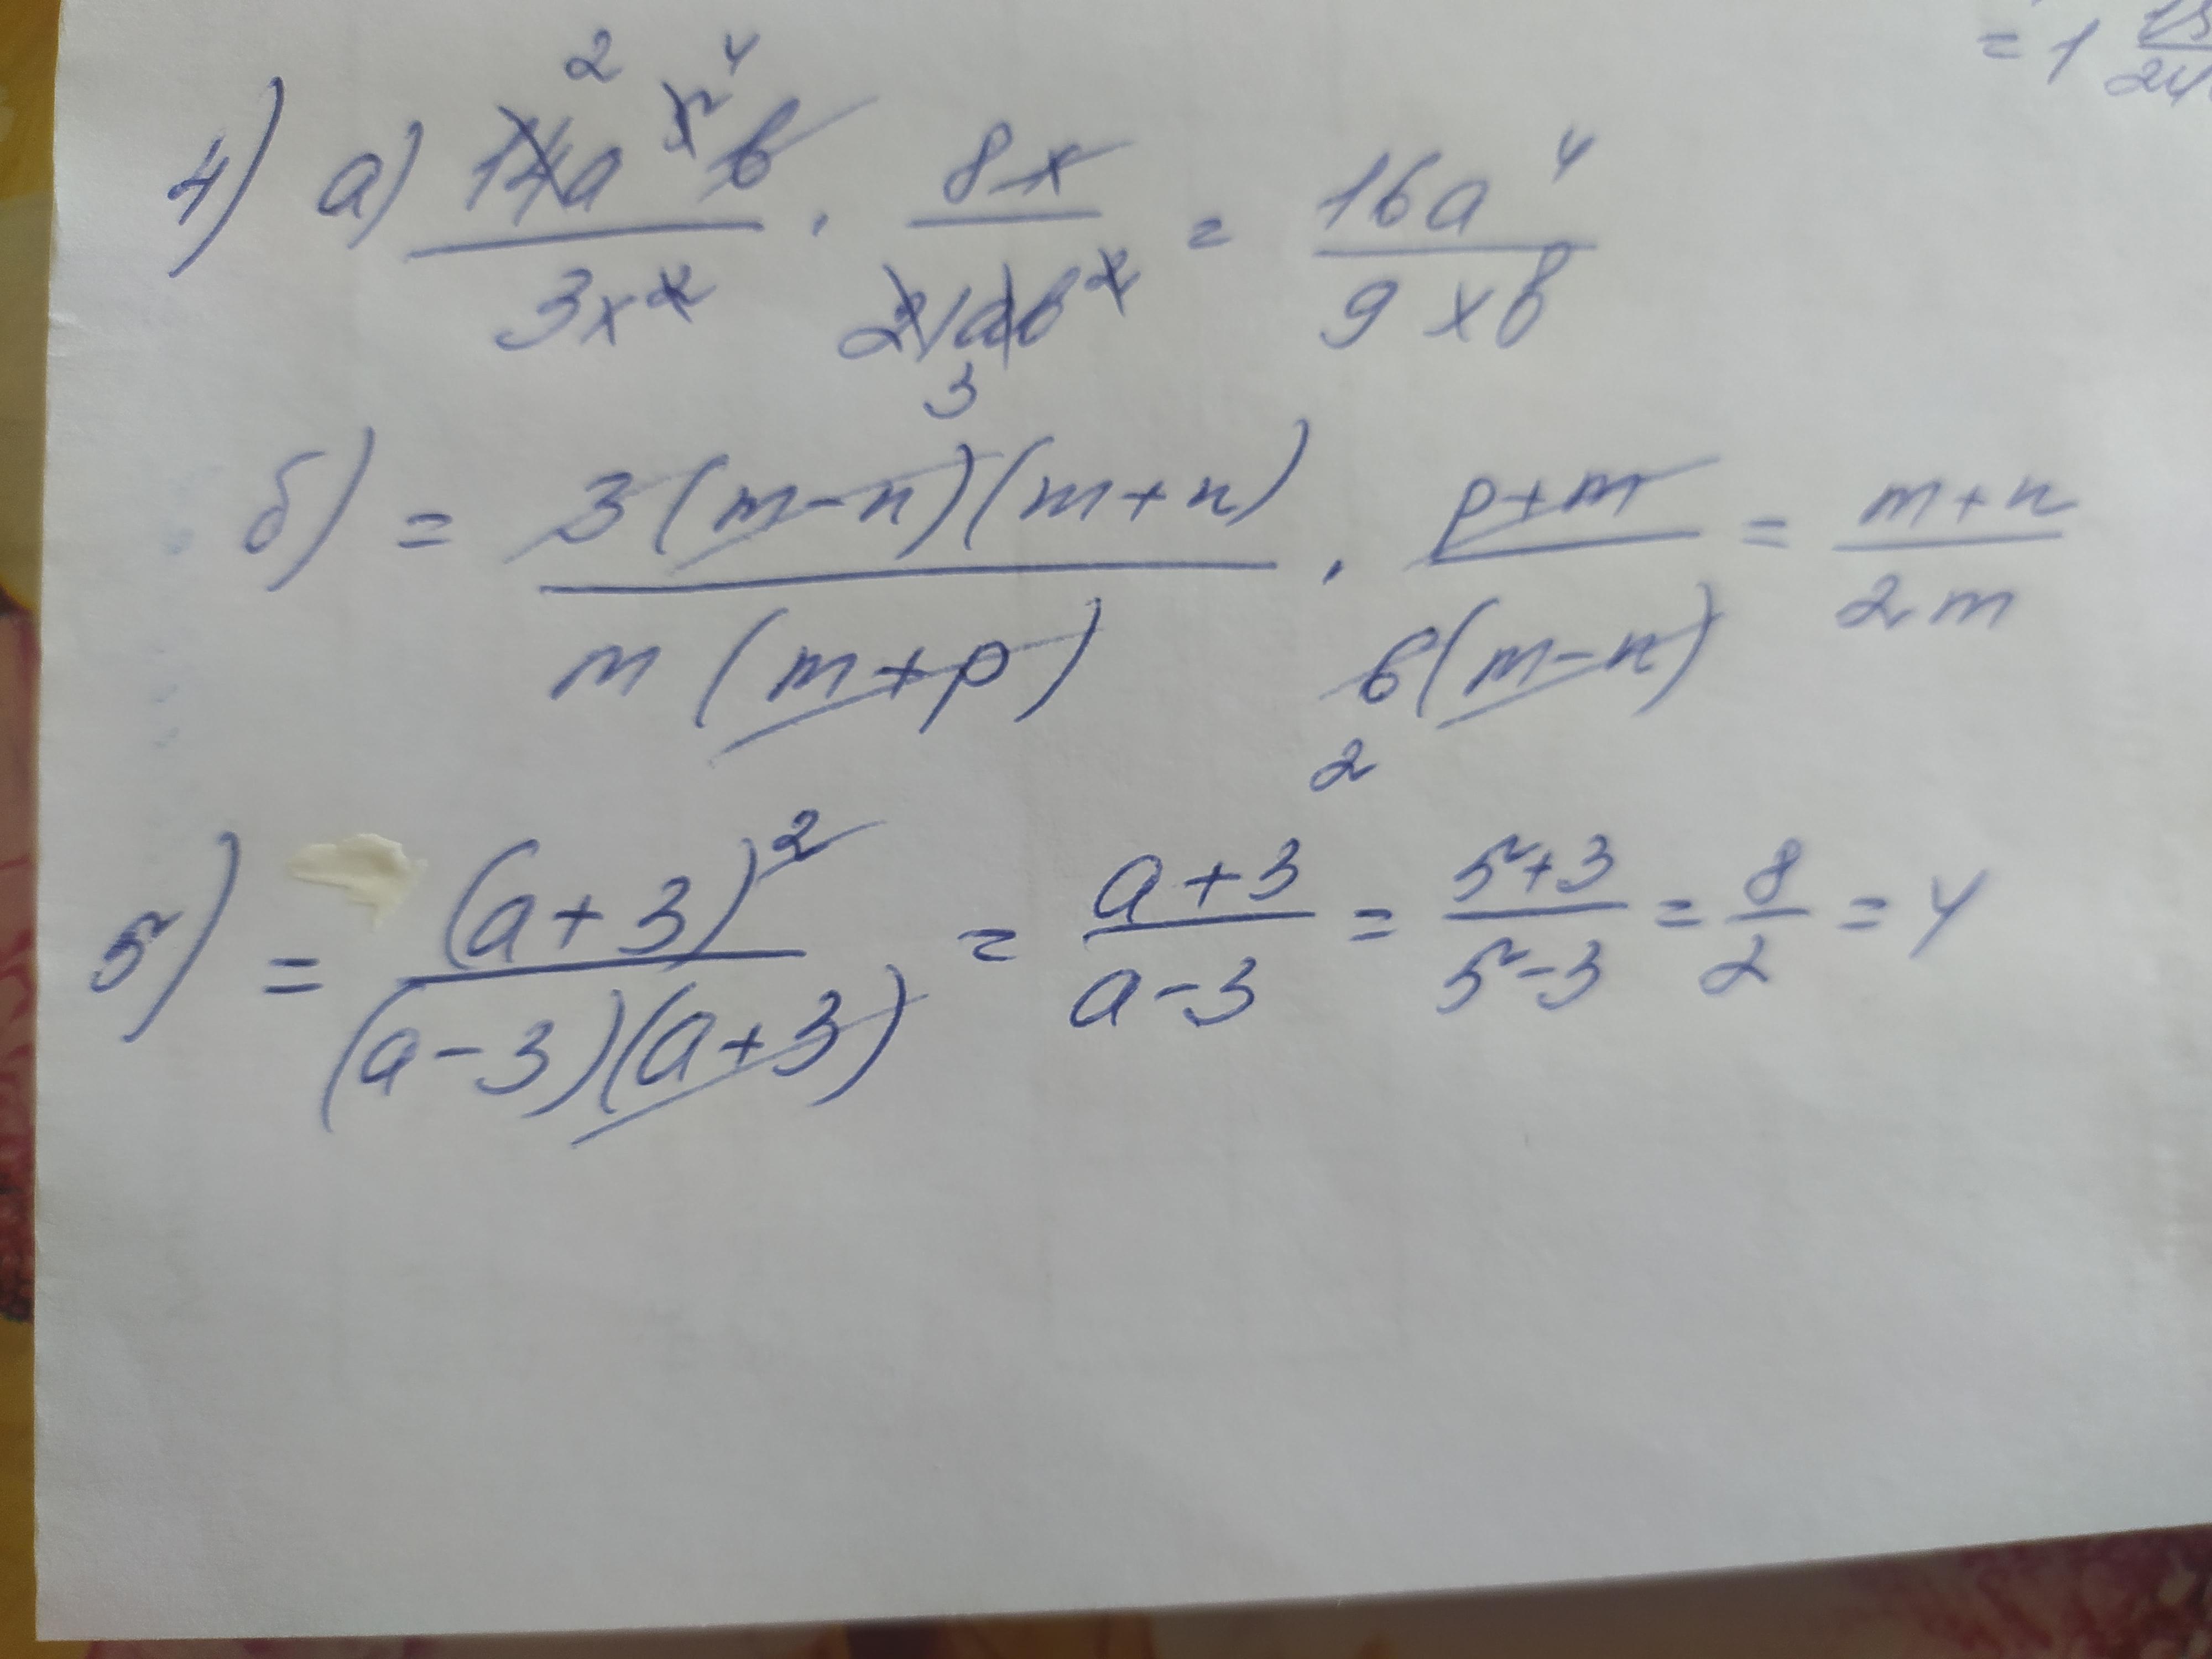 = 1
4) а) 14a⁵⁴b / 3x² · 8x / 21ab² = 16a⁴ / 9xb
2
3
б) = 3(m-n)(m+n) / m(m+p) · p+m / 6(m-n) = m+n / 2m
2
5) = (a+3)² / (a-3)(a+3) = a+3 / a-3 = 5+3 / 5-3 = 8 / 2 = 4